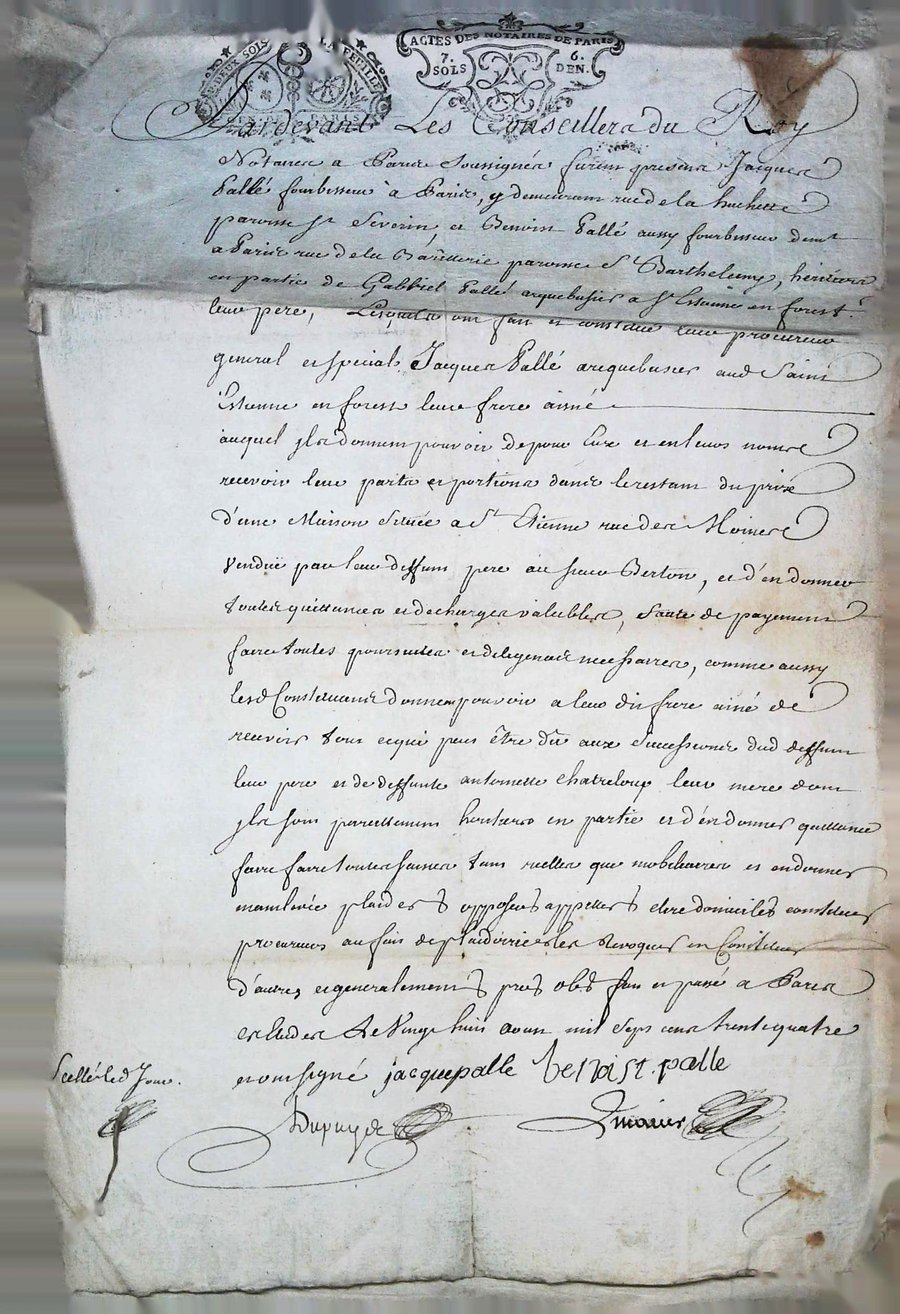 DE DEUX SOLS LA FEUILLE
GEN. DE PARIS
ACTES DES NOTAIRES DE PARIS
7. SOLS 6. DEN.
Pardevant Les Conseillers du Roy
Notaires a Paris soussignés furent presens Jacques
Pallé fourbisseur à Paris, y demeurant rue de la huchette
paroisse St Severin, et Benoist Pallé aussy fourbisseur demt
a Paris rue de la Barillerie paroisse St Barthelemy, héritiers
en partie de Gabbriel Pallé arquebusier a St Estienne en forest
leur pere, Lesquels ont fait et constitué leur procureur
general et special Jacques Pallé arquebusier aud Saint
Estienne en forest leur frere aisné
auquel jls donnent pouvoir de pour Eux et en leurs noms
recevoir leur parts et portions dans le restant du prix
d'une Maison Située a St Etienne rue des Moines
vendüe par leur deffunt pere au sieur Berton, et d'en donner
toutes quittances et decharges valables, faute de payement
faire toutes poursuites et deligences necessaires, comme aussy
lesd Constituans donnent pouvoir a leur dit frere ainé de
recevoir tout ce qui peut être dû aux Successions dud deffunt
leur pere et de deffunte antoinette Chatreloup leur mere dont
jls sont pareillement heritiers en partie et d'en donner quittance
faire faire toutes saisies tant réelles que mobiliaires et en donner
mainlevée plaider opposer appeller elire domiciles constituer
procureurs au fait de plaidoirrie les Revoquer en Constituer
d'autres et generalement promt oblt fait et passé a Paris
es Etudes Le Vingt huit aoust mil sept cens trente quatre
et ont signé jacque palle benoist. palle
Scellé led Jour.
Dupuyde